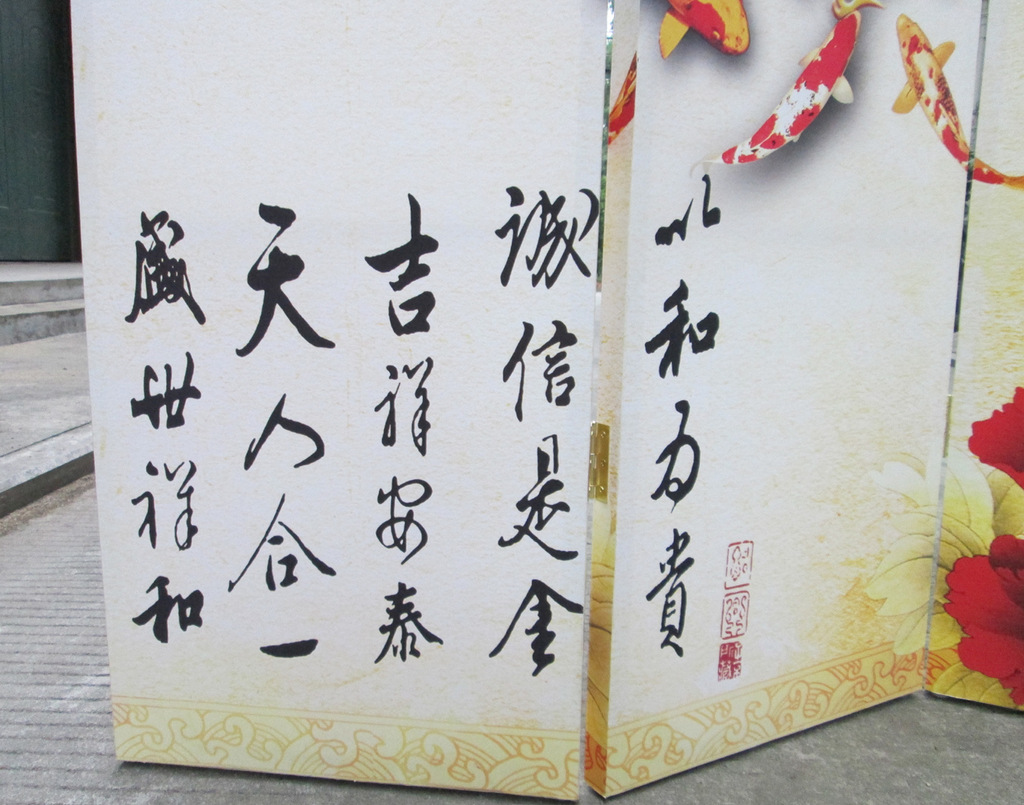 盛世祥和
天人合一
吉祥安泰
誠信是金
以和为貴